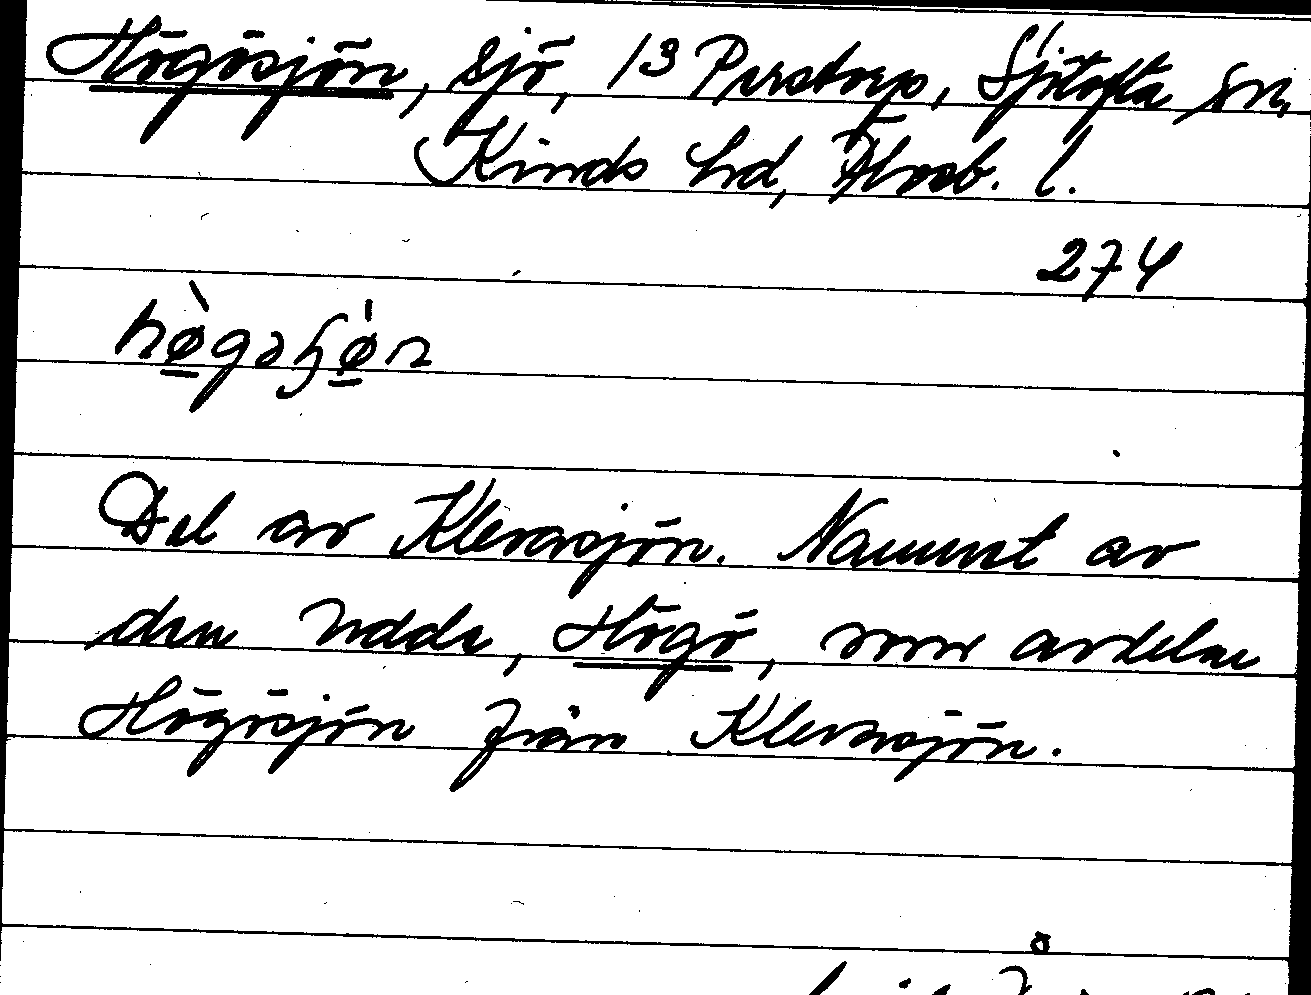 Högösjön, sjö, 13 Perstorp, Sjötofta sn,
Kinds hd, Älvsb. l.
274
hø̀gəɧø̍n
Del av Klevasjön. Namnet av
den udde, Högö, som avdelar
Högösjön från Klevasjön.